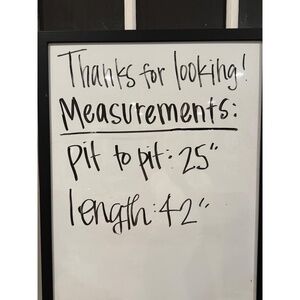 Thanks for looking!
Measurements:
pit to pit: 25"
length: 42"